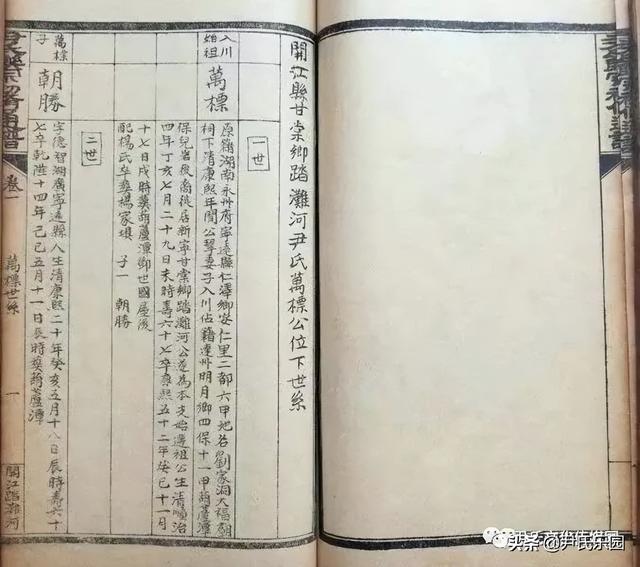 開江縣甘棠鄉踏灘河尹氏萬標公位下世系
一世
入川始祖
萬標
原籍湖南永州府寧遠縣仁澤鄉安仁里二都六甲地名劉家洞大福廟
祠下清康熙年間公挈妻子入川佔籍達州明月鄉四保十一甲葫蘆潭
保兒岩後裔徙居新寧甘棠鄉踏灘河公遂為本支始遷祖公生清順治
四年丁亥七月二十九日未時壽六十七卒康熙五十二年癸巳十一月
十七日戌時葬葫蘆潭鄧世國屋後
配楊氏卒葬楊家塤 子一 朝勝
二世
萬標子
朝勝
字德智湖廣寧遠縣人生清康熙二十年癸亥五月十八日辰時壽六十
七卒乾隆十四年己巳五月十一日辰時葬葫蘆潭
卷一
萬標世系
一
開江踏灘河
头条 @尹氏乐园